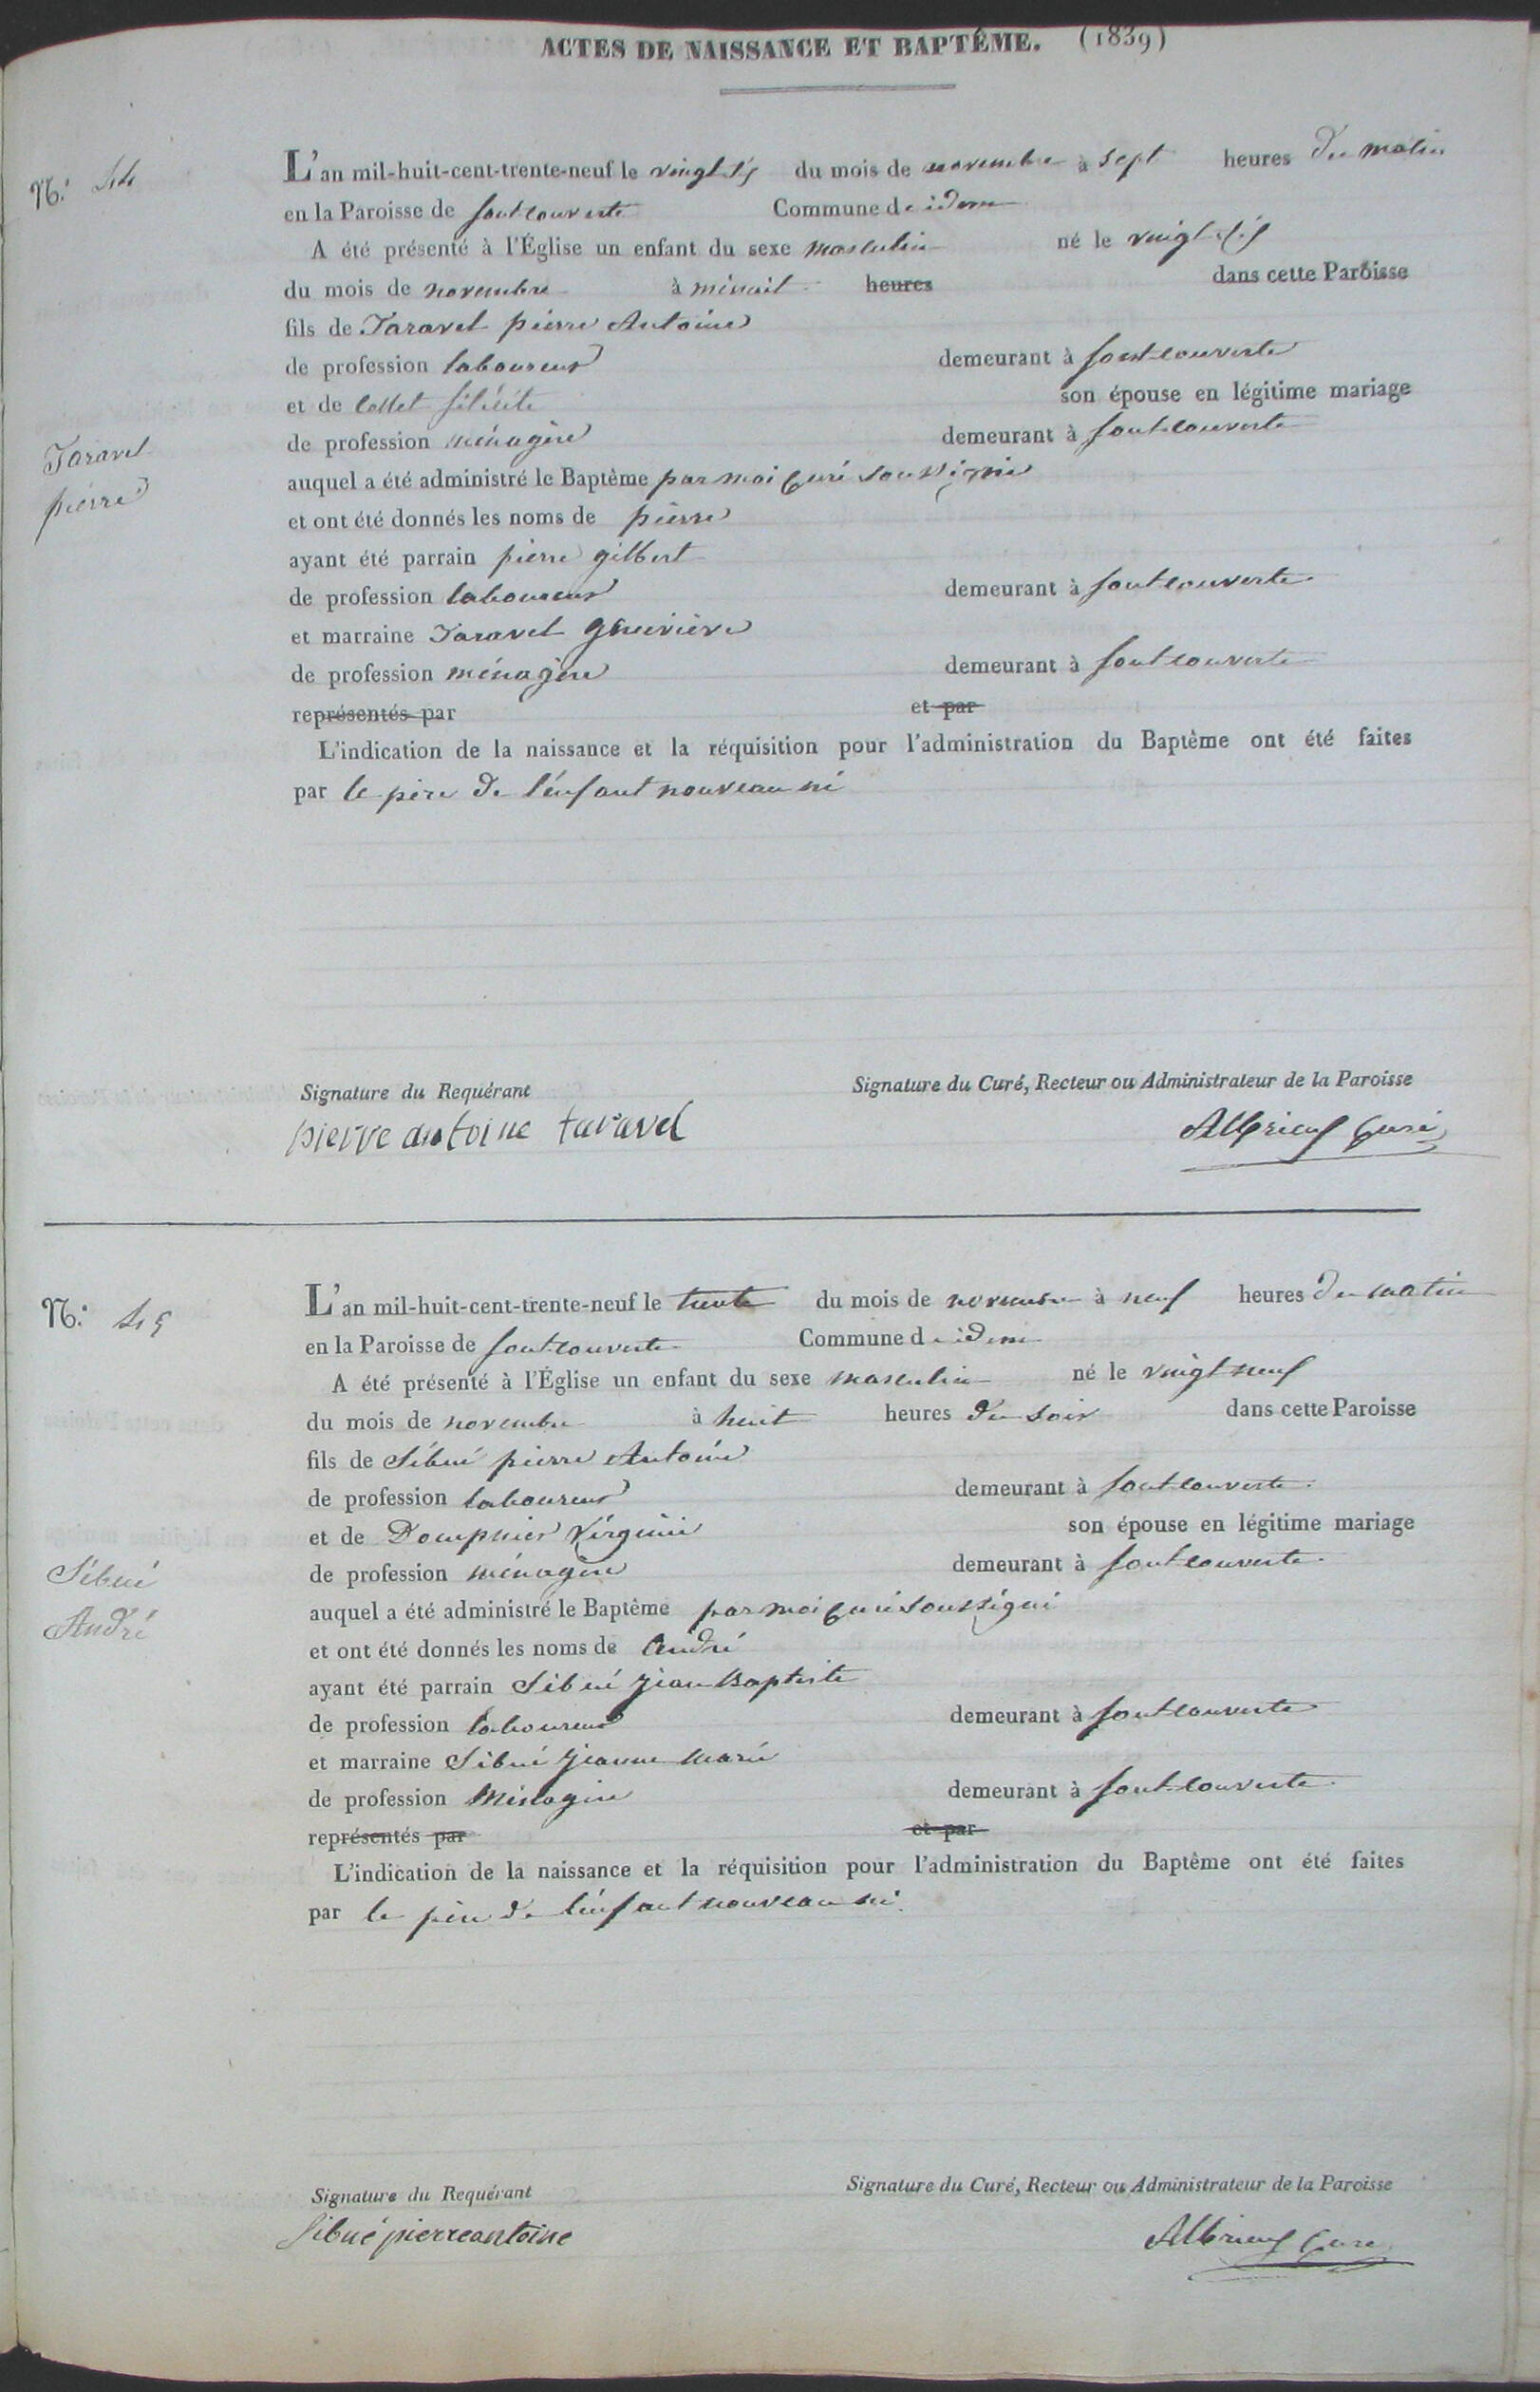 ACTES DE NAISSANCE ET BAPTÊME. (1839)
N.° 44
L'an mil-huit-cent-trente-neuf le vingt six du mois de novembre à sept heures du matin
en la Paroisse de fontcouverte Commune de idem
A été présenté à l'Église un enfant du sexe masculin né le vingt six
du mois de novembre à minuit heures dans cette Paroisse
fils de Taravel pierre Antoine
de profession laboureur demeurant à fontcouverte
et de Collet félicité son épouse en légitime mariage
Taravel
pierre
de profession ménagère demeurant à fontcouverte
auquel a été administré le Baptême par moi Curé soussigné
et ont été donnés les noms de pierre
ayant été parrain pierre gilbert
de profession laboureur demeurant à fontcouverte
et marraine Taravel genevieve
de profession ménagère demeurant à fontcouverte
représentés par et par
L'indication de la naissance et la réquisition pour l'administration du Baptême ont été faites
par le père de l'enfant nouveau né
Signature du Requérant Signature du Curé, Recteur ou Administrateur de la Paroisse
pierre antoine taravel Albrieux Curé
N.° 45
L'an mil-huit-cent-trente-neuf le trente du mois de novembre à neuf heures du matin
en la Paroisse de fontcouverte Commune de idem
A été présenté à l'Église un enfant du sexe masculin né le vingt neuf
du mois de novembre à huit heures du soir dans cette Paroisse
fils de Sibué pierre Antoine
de profession laboureur demeurant à fontcouverte
et de Dompnier Virginie son épouse en légitime mariage
Sibué
André
de profession ménagère demeurant à fontcouverte
auquel a été administré le Baptême par moi Curé soussigné
et ont été donnés les noms de André
ayant été parrain Sibué jean Baptiste
de profession laboureur demeurant à fontcouverte
et marraine Sibué jeanne marie
de profession Ménagère demeurant à fontcouverte
représentés par et par
L'indication de la naissance et la réquisition pour l'administration du Baptême ont été faites
par le père de l'enfant nouveau né.
Signature du Requérant Signature du Curé, Recteur ou Administrateur de la Paroisse
Sibué pierre antoine Albrieux Curé